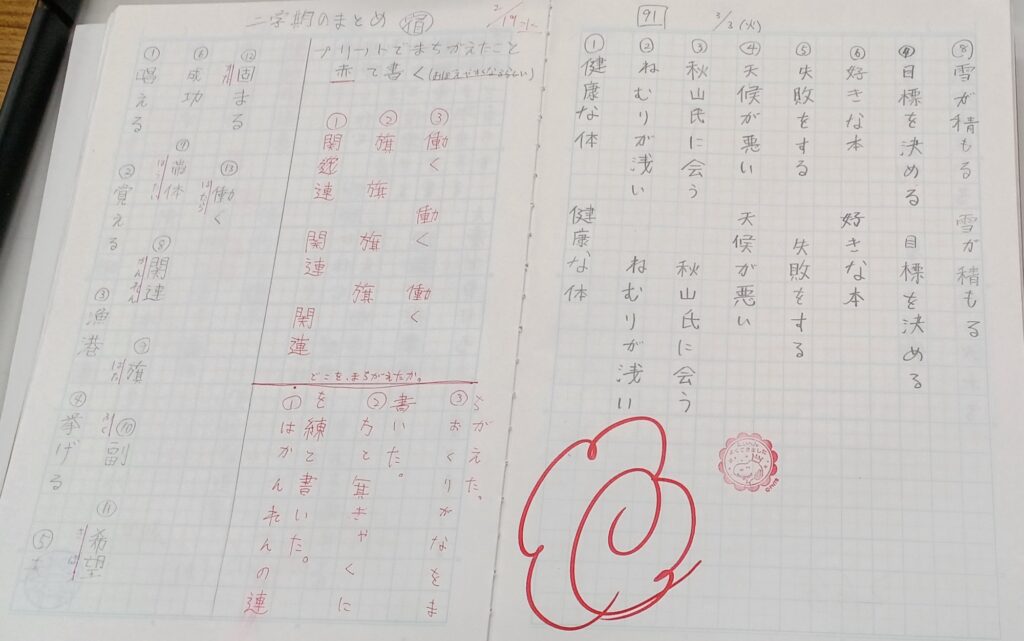 二字期のまとめ 宿
2/19
① 唱える
⑥ 成功
⑫ 固まる
② 覚える
⑦ 帯体
⑬ 働く
はたら
③ 漁港
⑧ 関連
かんれん
④ 挙げる
⑨ 旗
はた
⑩ 副
⑪ 希望
⑤
プリントでまちがえたこと
赤で書く
① 関連 関連 関連
② 旗 旗 旗 旗
③ 働く 働く 働く
どこをまちがえたか。
①はかんれんの連
を練と書いた。
書いた。
③おくりがなをま
ちがえた。
91
3/3(火)
① 健康な体 健康な体
② ねむりが浅い ねむりが浅い
③ 秋山氏に会う 秋山氏に会う
④ 天候が悪い 天候が悪い
⑤ 失敗をする 失敗をする
⑥ 好きな本 好きな本
⑦ 目標を決める 目標を決める
⑧ 雪が積もる 雪が積もる